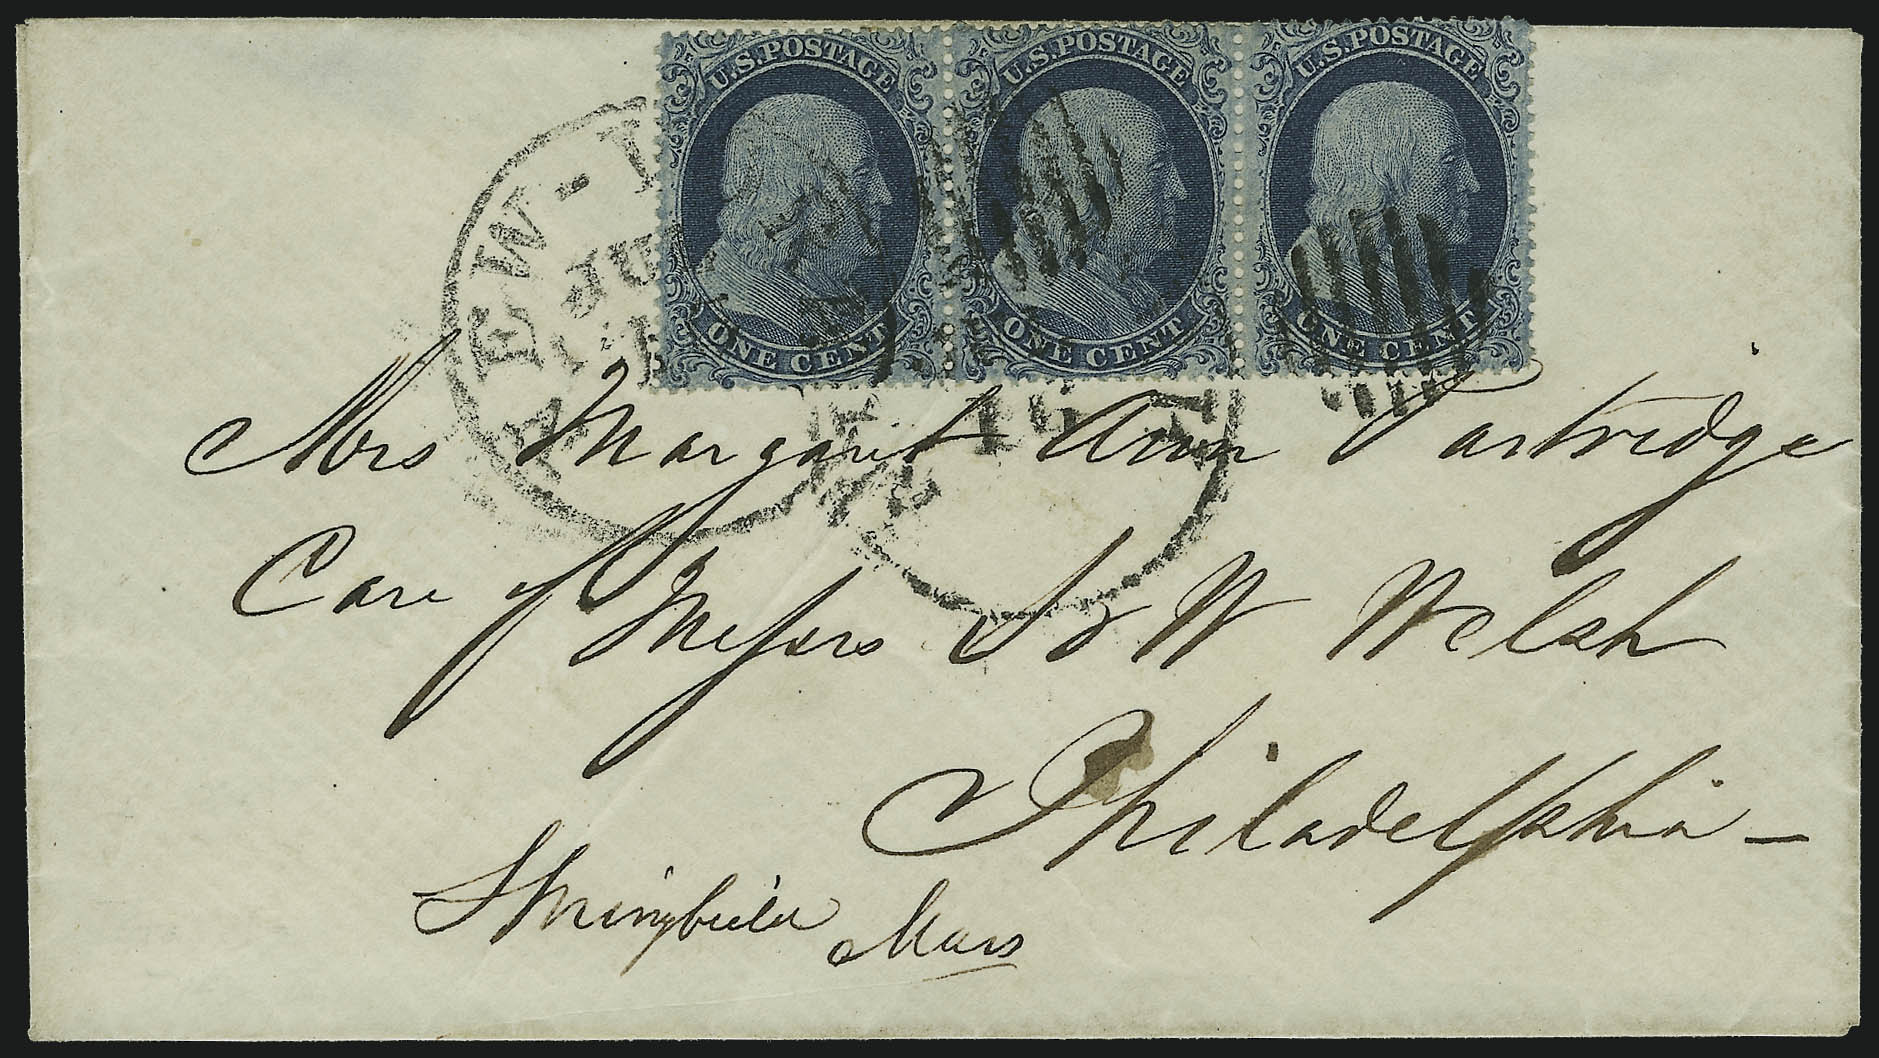 U.S. POSTAGE U.S. POSTAGE U.S. POSTAGE
ONE CENT ONE CENT ONE CENT
NEW-
JU
Mrs Margaret Ann Partridge
Care of Messrs S & W Welsh
Philadelphia —
Springfield Mass